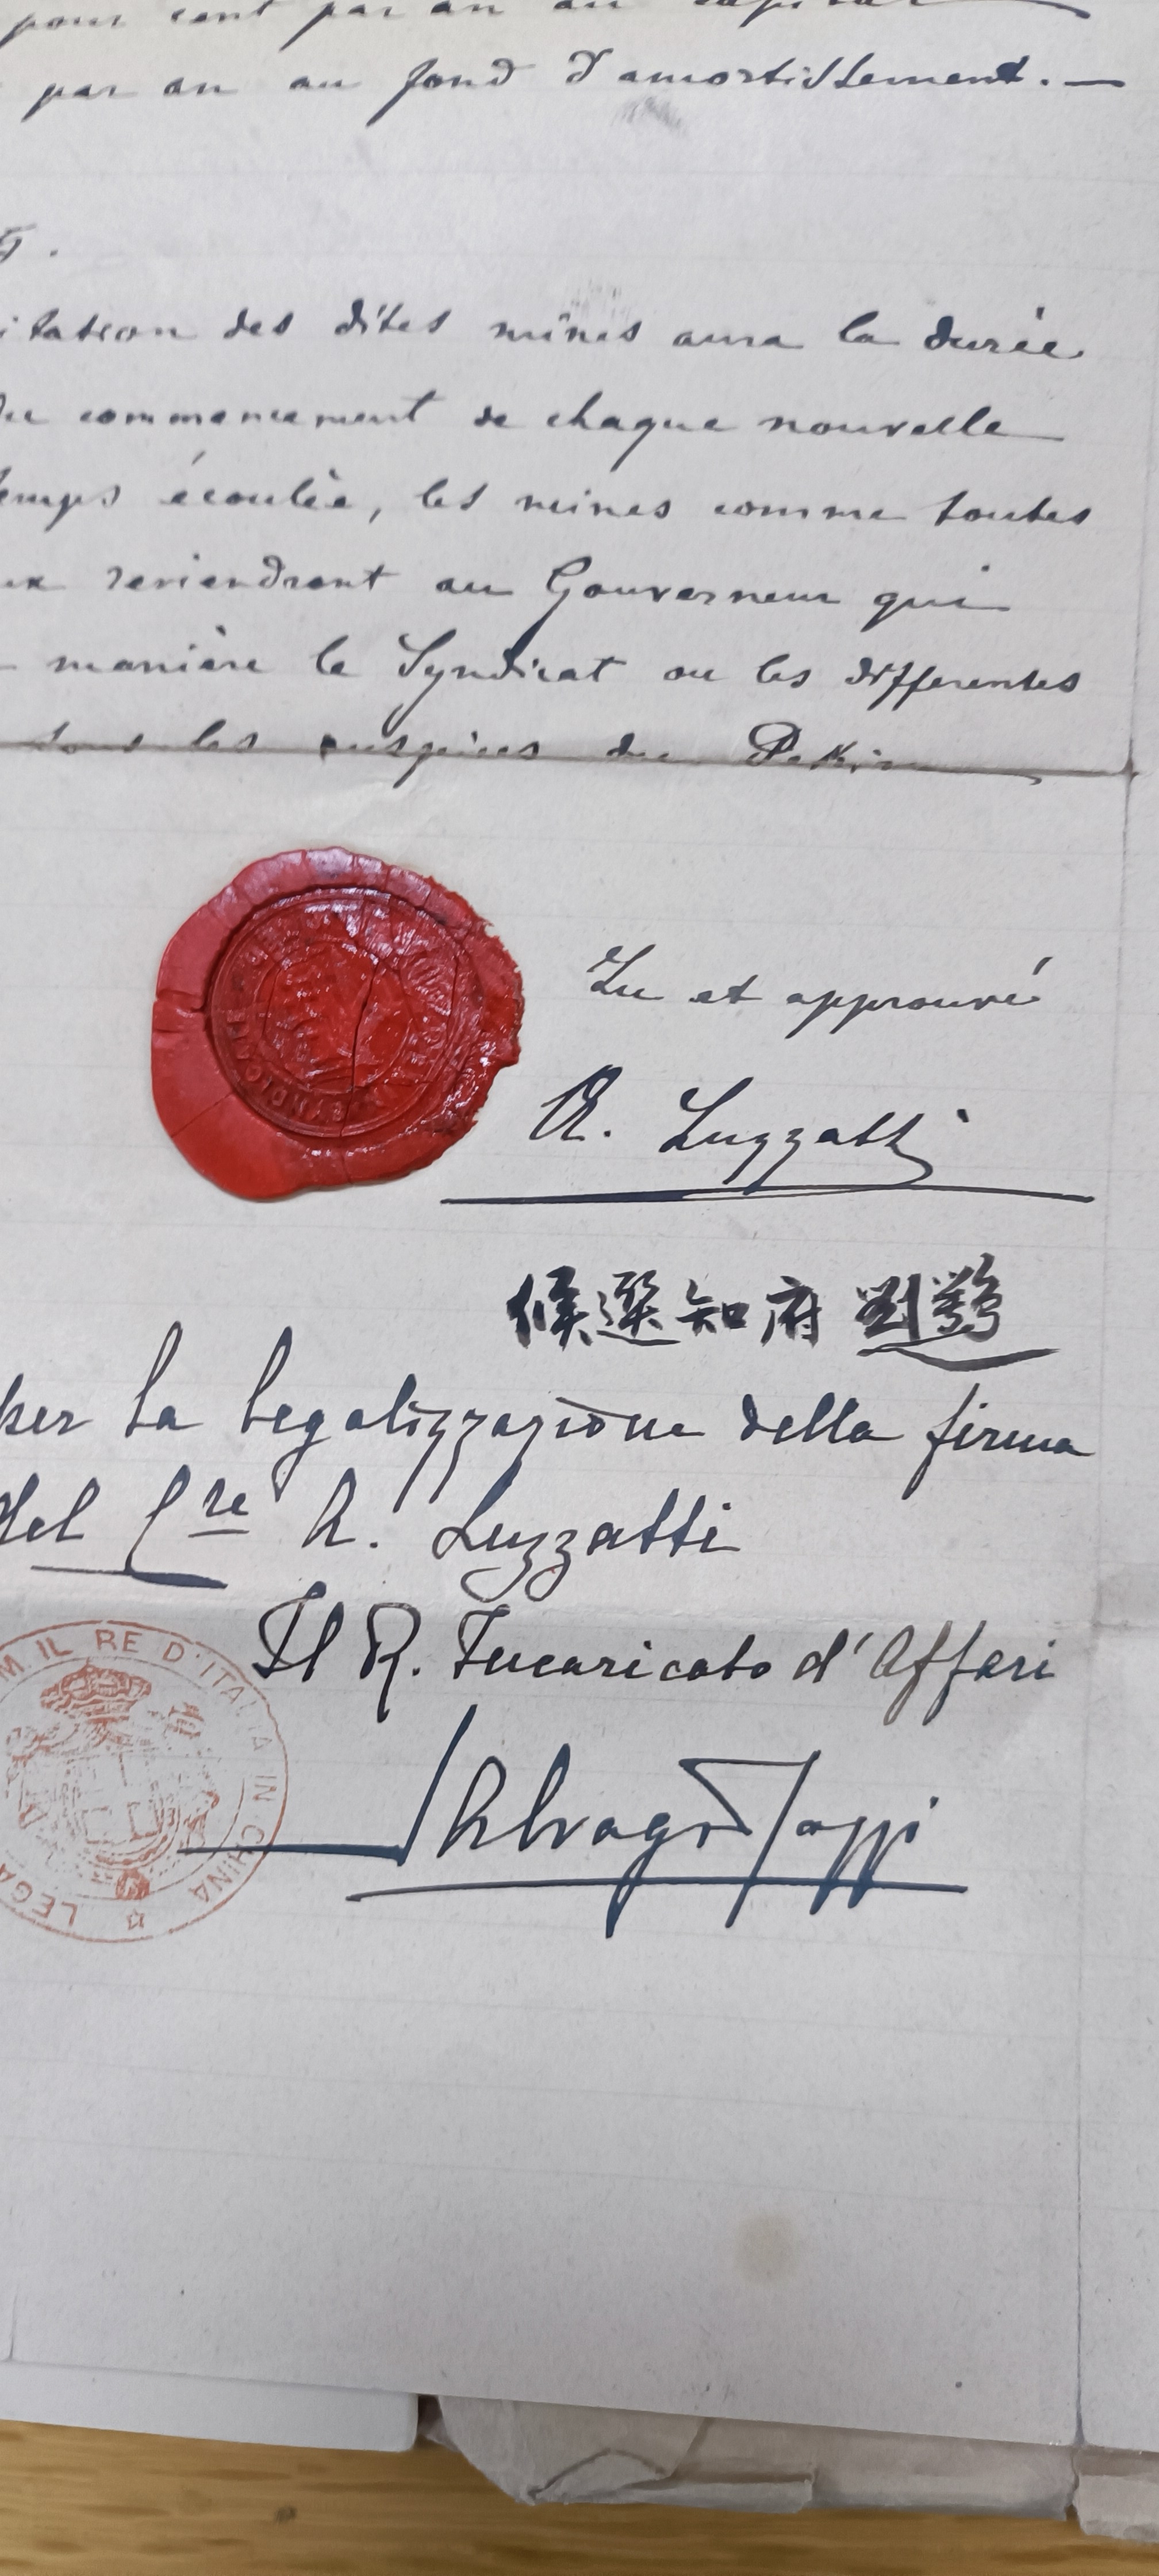 pour cent par an au capital
par an au fond d'amortissement. —
itation des dites mines aura la durée
du commancement de chaque nouvelle
temps écoulée, les mines comme toutes
reviendront au Gouverneur qui
manière le Syndicat ou les differentes
sous les auspices du Pekin
Lu et approuvé
A. Luzzatti
候選知府劉鶚
per la legalizzazione della firma
del Sre A. Luzzatti
Il R. Incaricato d'Affari
Salvago Raggi
M IL RE D'ITALIA IN CHINA
LEGA
SYNDICATE